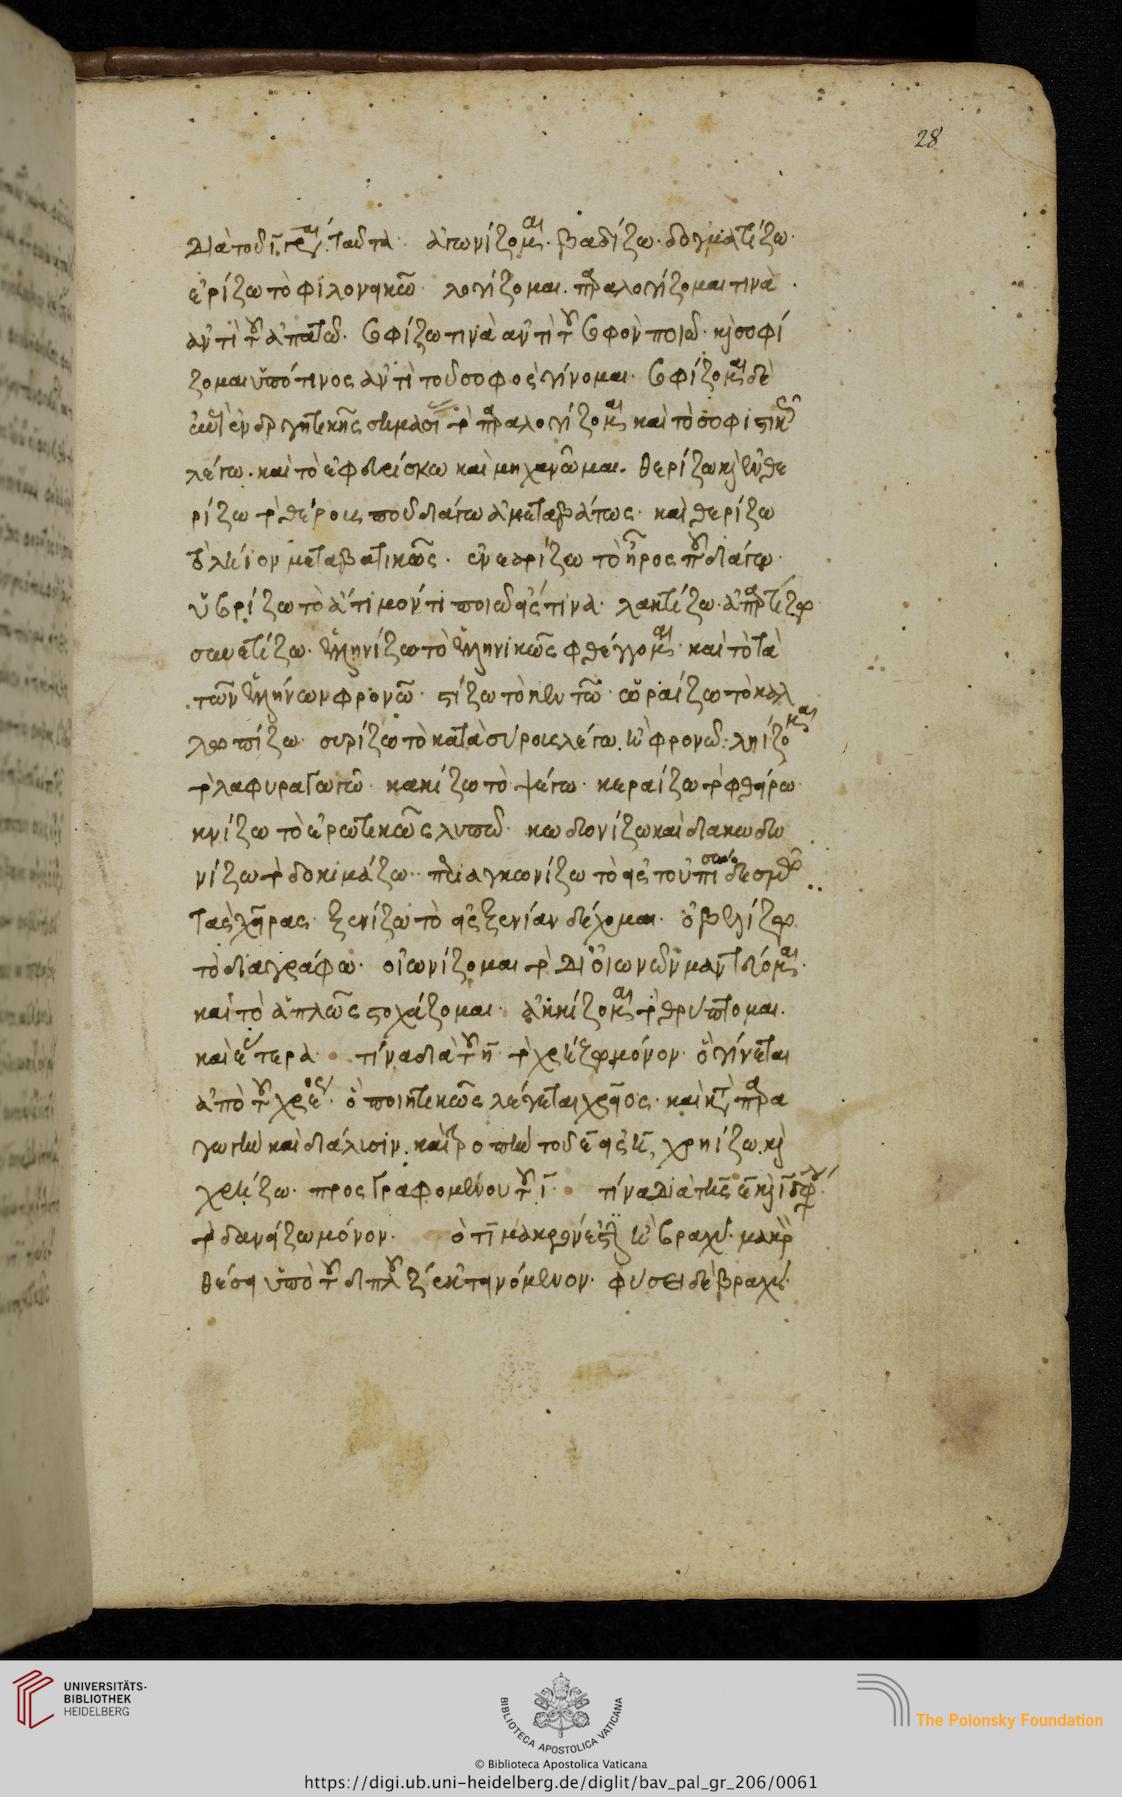 28
διὰ τοῦ ῑ γρ ταῦτα· ἀγωνίζομαι· βαδίζω· δογματίζω·
ἐρίζω τὸ φιλονεικῶ· λογίζομαι· παραλογίζομαι τινὰ·
ἀντὶ τοῦ ἀπατῶ· σοφίζω τινὰ ἀντὶ τοῦ σοφὸν ποιῶ· καὶ σοφί
ζομαι ὑπό τινος ἀντὶ τοῦ σοφὸς γίνομαι· σοφίζομαι δὲ
ἐνεργητικῆς σημασι τὸ παραλογίζομαι καὶ τὸ σοφιστικ
λέγω· καὶ τὸ ἐφευρίσκω καὶ μηχανῶμαι· θερίζω καὶ ἐνθε
ρίζω τὸ θέρους που διάγω ἀμεταβάτως· καὶ θερίζω
τὸ λήϊον μεταβατικῶς· ἐνεαρίζω τὸ ἦρος που διάγω·
ὑβρίζω τὸ ἄτιμόν τι ποιῶ εἴς τινα· λακτίζω· ἀπαρτίζω
συνετίζω· ἑλληνίζω τὸ ἑλληνικῶς φθέγγομαι· καὶ τὸ τὰ
τῶν ἑλλήνων φρονῶ· στίζω τὸ κεντῶ· ὡραΐζω τὸ καλ
λωπίζω· συρίζω τὸ κατὰ σύρους λέγω ἢ φρονῶ· ληΐζομαι
τὸ λαφυραγωγῶ· κακίζω τὸ ψέγω· κεραΐζω τὸ φθείρω
κνίζω τὸ ἐρωτικῶς λυπῶ· κωδωνίζω καὶ διακωδω
νίζω τὸ δοκιμάζω· περιαγκωνίζω τὸ εἰς τοὐπίσω δεσμῶ
τὰς χεῖρας· ξενίζω τὸ εἰς ξενίαν δέχομαι· ὀβελίζω
τὸ διαγράφω· οἰωνίζομαι τὸ δι οἰωνῶν μαντεύομαι·
καὶ τὸ ἁπλῶς στοχάζομαι· ἀκκίζομαι τὸ θρύπτομαι·
καὶ ἕτερα· τίνα διὰ τοῦ η̄ τὸ χρήζω μόνον· ὃ γίνεται
ἀπὸ τοῦ χρέος· ὃ ποιητικῶς λέγεται χρεῖος· καὶ κατὰ παρα
γωγὴν καὶ διάλυσιν· καὶ τροπὴν τοῦ ε̄ εἰς η̄, χρηΐζω καὶ
χρῄζω· προσγραφομένου τοῦ ῑ· τίνα διὰ τῆς ε̄ καὶ ῑ διφθόγγου
τὸ δανείζω μόνον· ὅτι μακρόν ἐστι ἢ βραχύ· μακρὸν
θέσει ὑπὸ τοῦ διπλοῦ ζ̄ ἐκτεινόμενον· φύσει δὲ βραχύ·
UNIVERSITÄTS-
BIBLIOTHEK
HEIDELBERG
BIBLIOTECA APOSTOLICA VATICANA
The Polonsky Foundation
© Biblioteca Apostolica Vaticana
https://digi.ub.uni-heidelberg.de/diglit/bav_pal_gr_206/0061